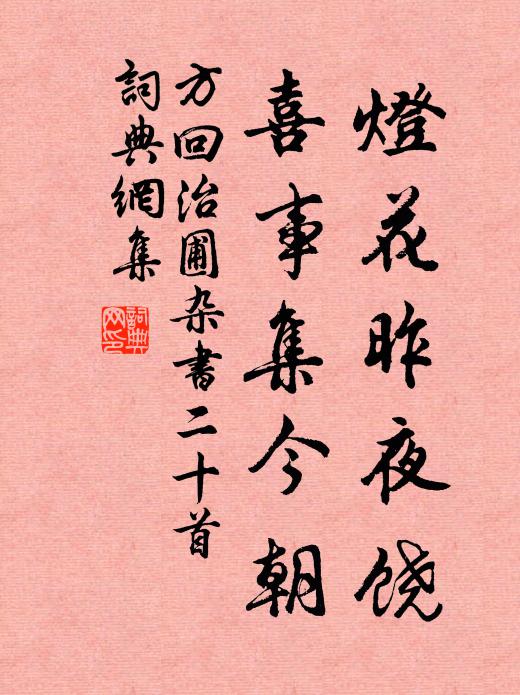 燈花昨夜饶
喜事集今朝
方回治圃杂書二十首
詞典網集
詞典网印